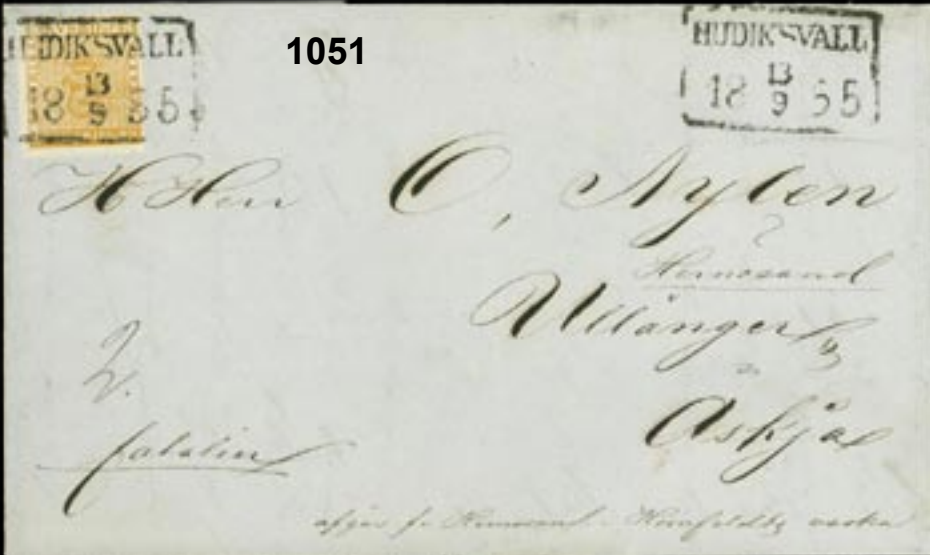 HUDIKSVALL
13
18 9 55
1051
HUDIKSVALL
13
18 9 55
H Herr O, Nylén
Hernösand
Ullånger
Askja
2.